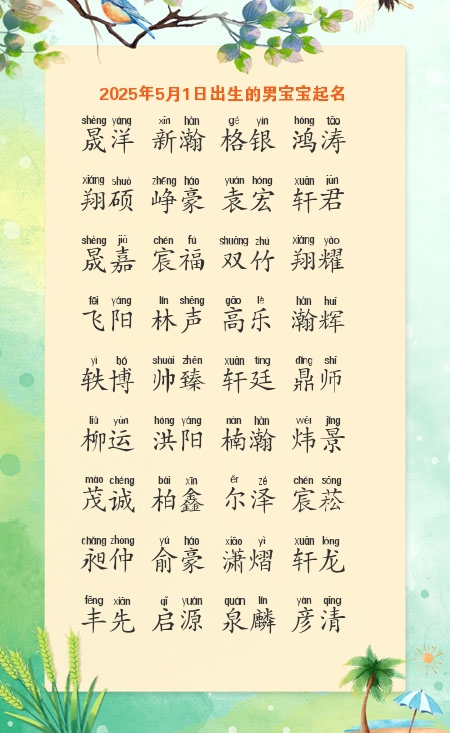 2025年5月1日出生的男宝宝起名
shèng yáng xīn hàn gé yín hóng tāo
晟洋 新瀚 格银 鸿涛
xiáng shuò zhēng háo yuán hóng xuān jūn
翔硕 峥豪 袁宏 轩君
shèng jiā chén fú shuāng zhú xiáng yào
晟嘉 宸福 双竹 翔耀
fēi yáng lín shēng gāo lè hàn huī
飞阳 林声 高乐 瀚辉
yì bó shuài zhēn xuān tíng dǐng shī
轶博 帅臻 轩廷 鼎师
liǔ yùn hóng yáng nán hàn wěi jǐng
柳运 洪阳 楠瀚 炜景
mào chéng bǎi xīn ěr zé chén sōng
茂诚 柏鑫 尔泽 宸菘
chǎng zhòng yú háo xiāo yì xuān lóng
昶仲 俞豪 潇熠 轩龙
fēng xiān qǐ yuán quán lín yàn qīng
丰先 启源 泉麟 彦清